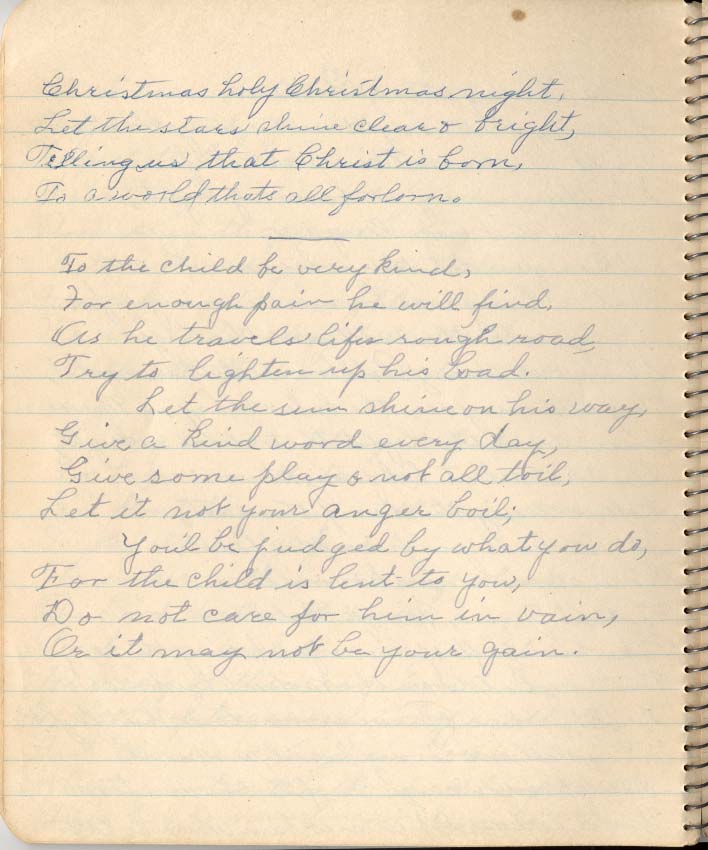 Christmas holy Christmas night,
Let the stars shine clear & bright,
Telling us that Christ is born,
To a world thats all forlorn.
To the child be very kind,
For enough pain he will find,
As he travels lifes rough road,
Try to lighten up his load.
Let the sun shine on his way,
Give a kind word every day,
Give some play & not all toil,
Let it not your anger boil;
You'l be judged by what you do,
For the child is lent to you,
Do not care for him in vain,
Or it may not be your gain.